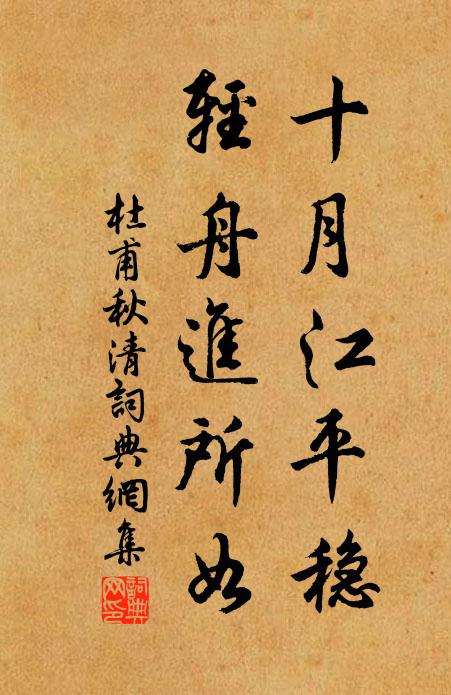 十月江平稳
輕舟進所如
杜甫秋清詞典網集
詞典网印